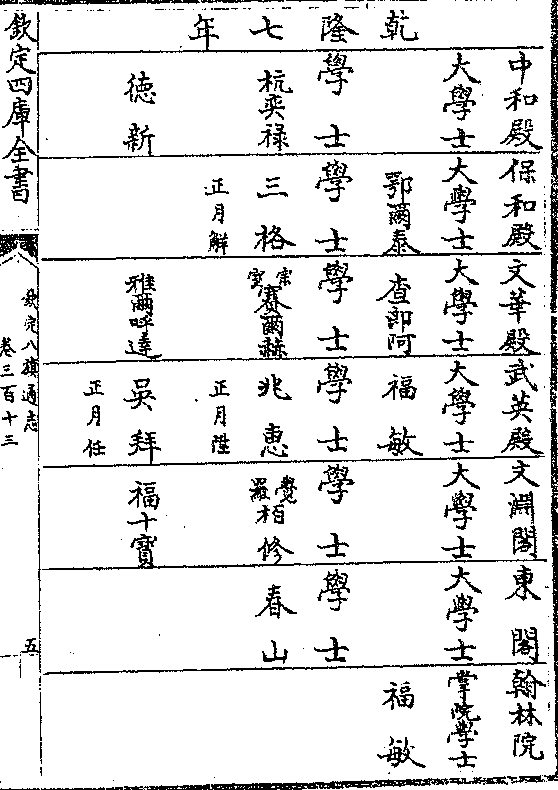 乾隆七年
中和殿 保和殿 文華殿 武英殿 文淵閣 東閣 翰林院
大學士 大學士 大學士 大學士 大學士 大學士 掌院學士
鄂爾泰 查郎阿 福敏 福敏
學士 學士 學士 學士 學士 學士
杭奕禄 三格 宗室賽爾赫 兆惠 覺羅柏修 春山
正月解 正月陞
德新 雅爾呼達 吳拜 福十寶
正月任
欽定四庫全書
欽定八旗通志
卷三百十三
五